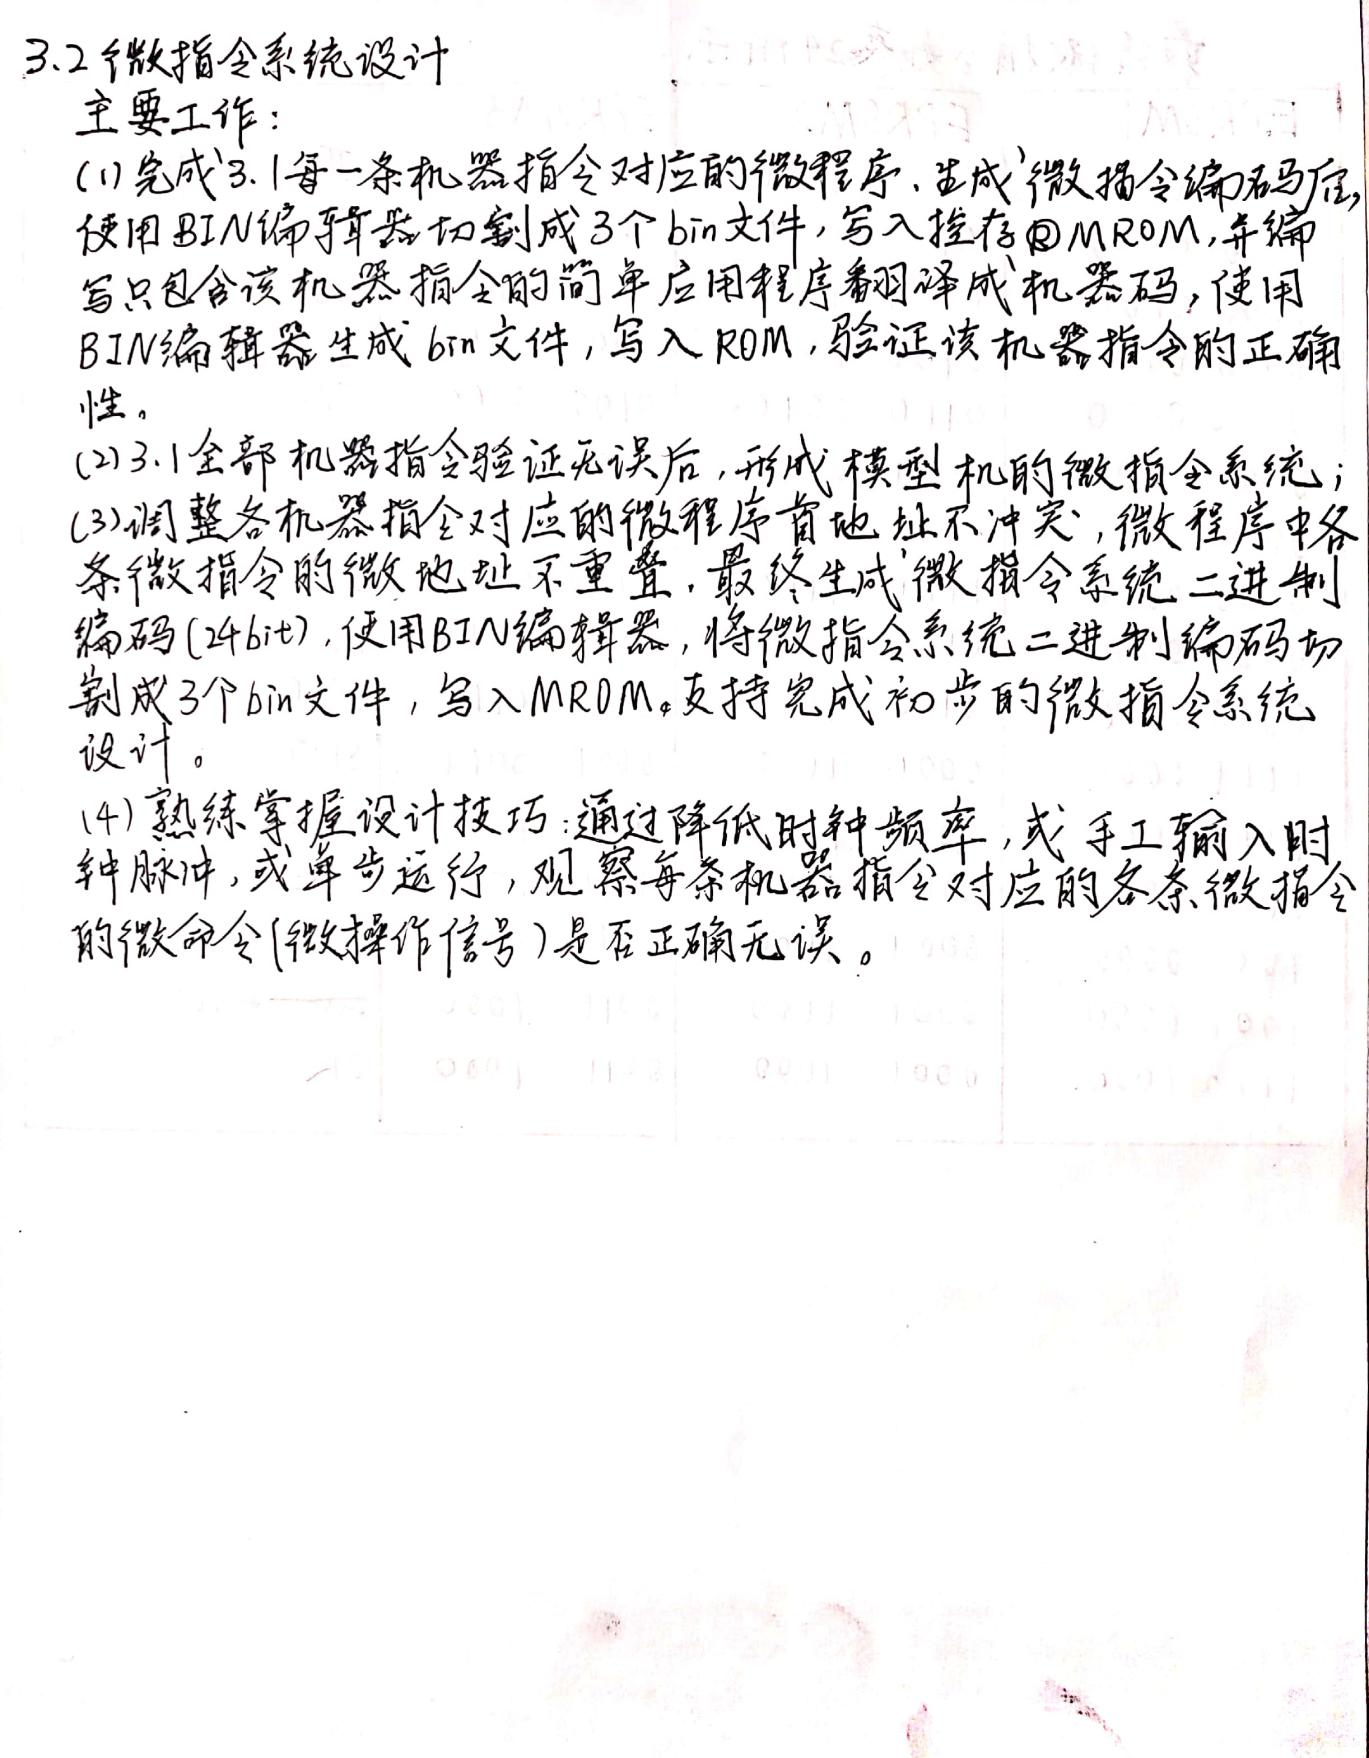 3.2 微指令系统设计
主要工作：
(1) 完成3.1每一条机器指令对应的微程序、生成微指令编码后，
使用BIN编辑器切割成3个bin文件，写入控存MROM，并编
写只包含该机器指令的简单应用程序翻译成机器码，使用
BIN编辑器生成bin文件，写入ROM，验证该机器指令的正确
性。
(2) 3.1全部机器指令验证无误后，形成模型机的微指令系统；
(3) 调整各机器指令对应的微程序首地址不冲突，微程序中各
条微指令的微地址不重叠，最终生成微指令系统二进制
编码(24bit)，使用BIN编辑器，将微指令系统二进制编码切
割成3个bin文件，写入MROM。支持完成初步的微指令系统
设计。
(4) 熟练掌握设计技巧：通过降低时钟频率，或手工输入时
钟脉冲，或单步运行，观察每条机器指令对应的各条微指令
的微命令(微操作信号)是否正确无误。